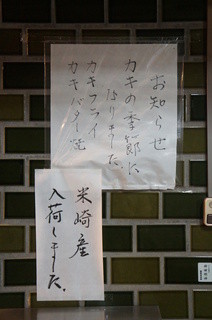 お知らせ
カキの季節に
なりました
カキフライ
カキバター焼
米崎産
入荷しました.